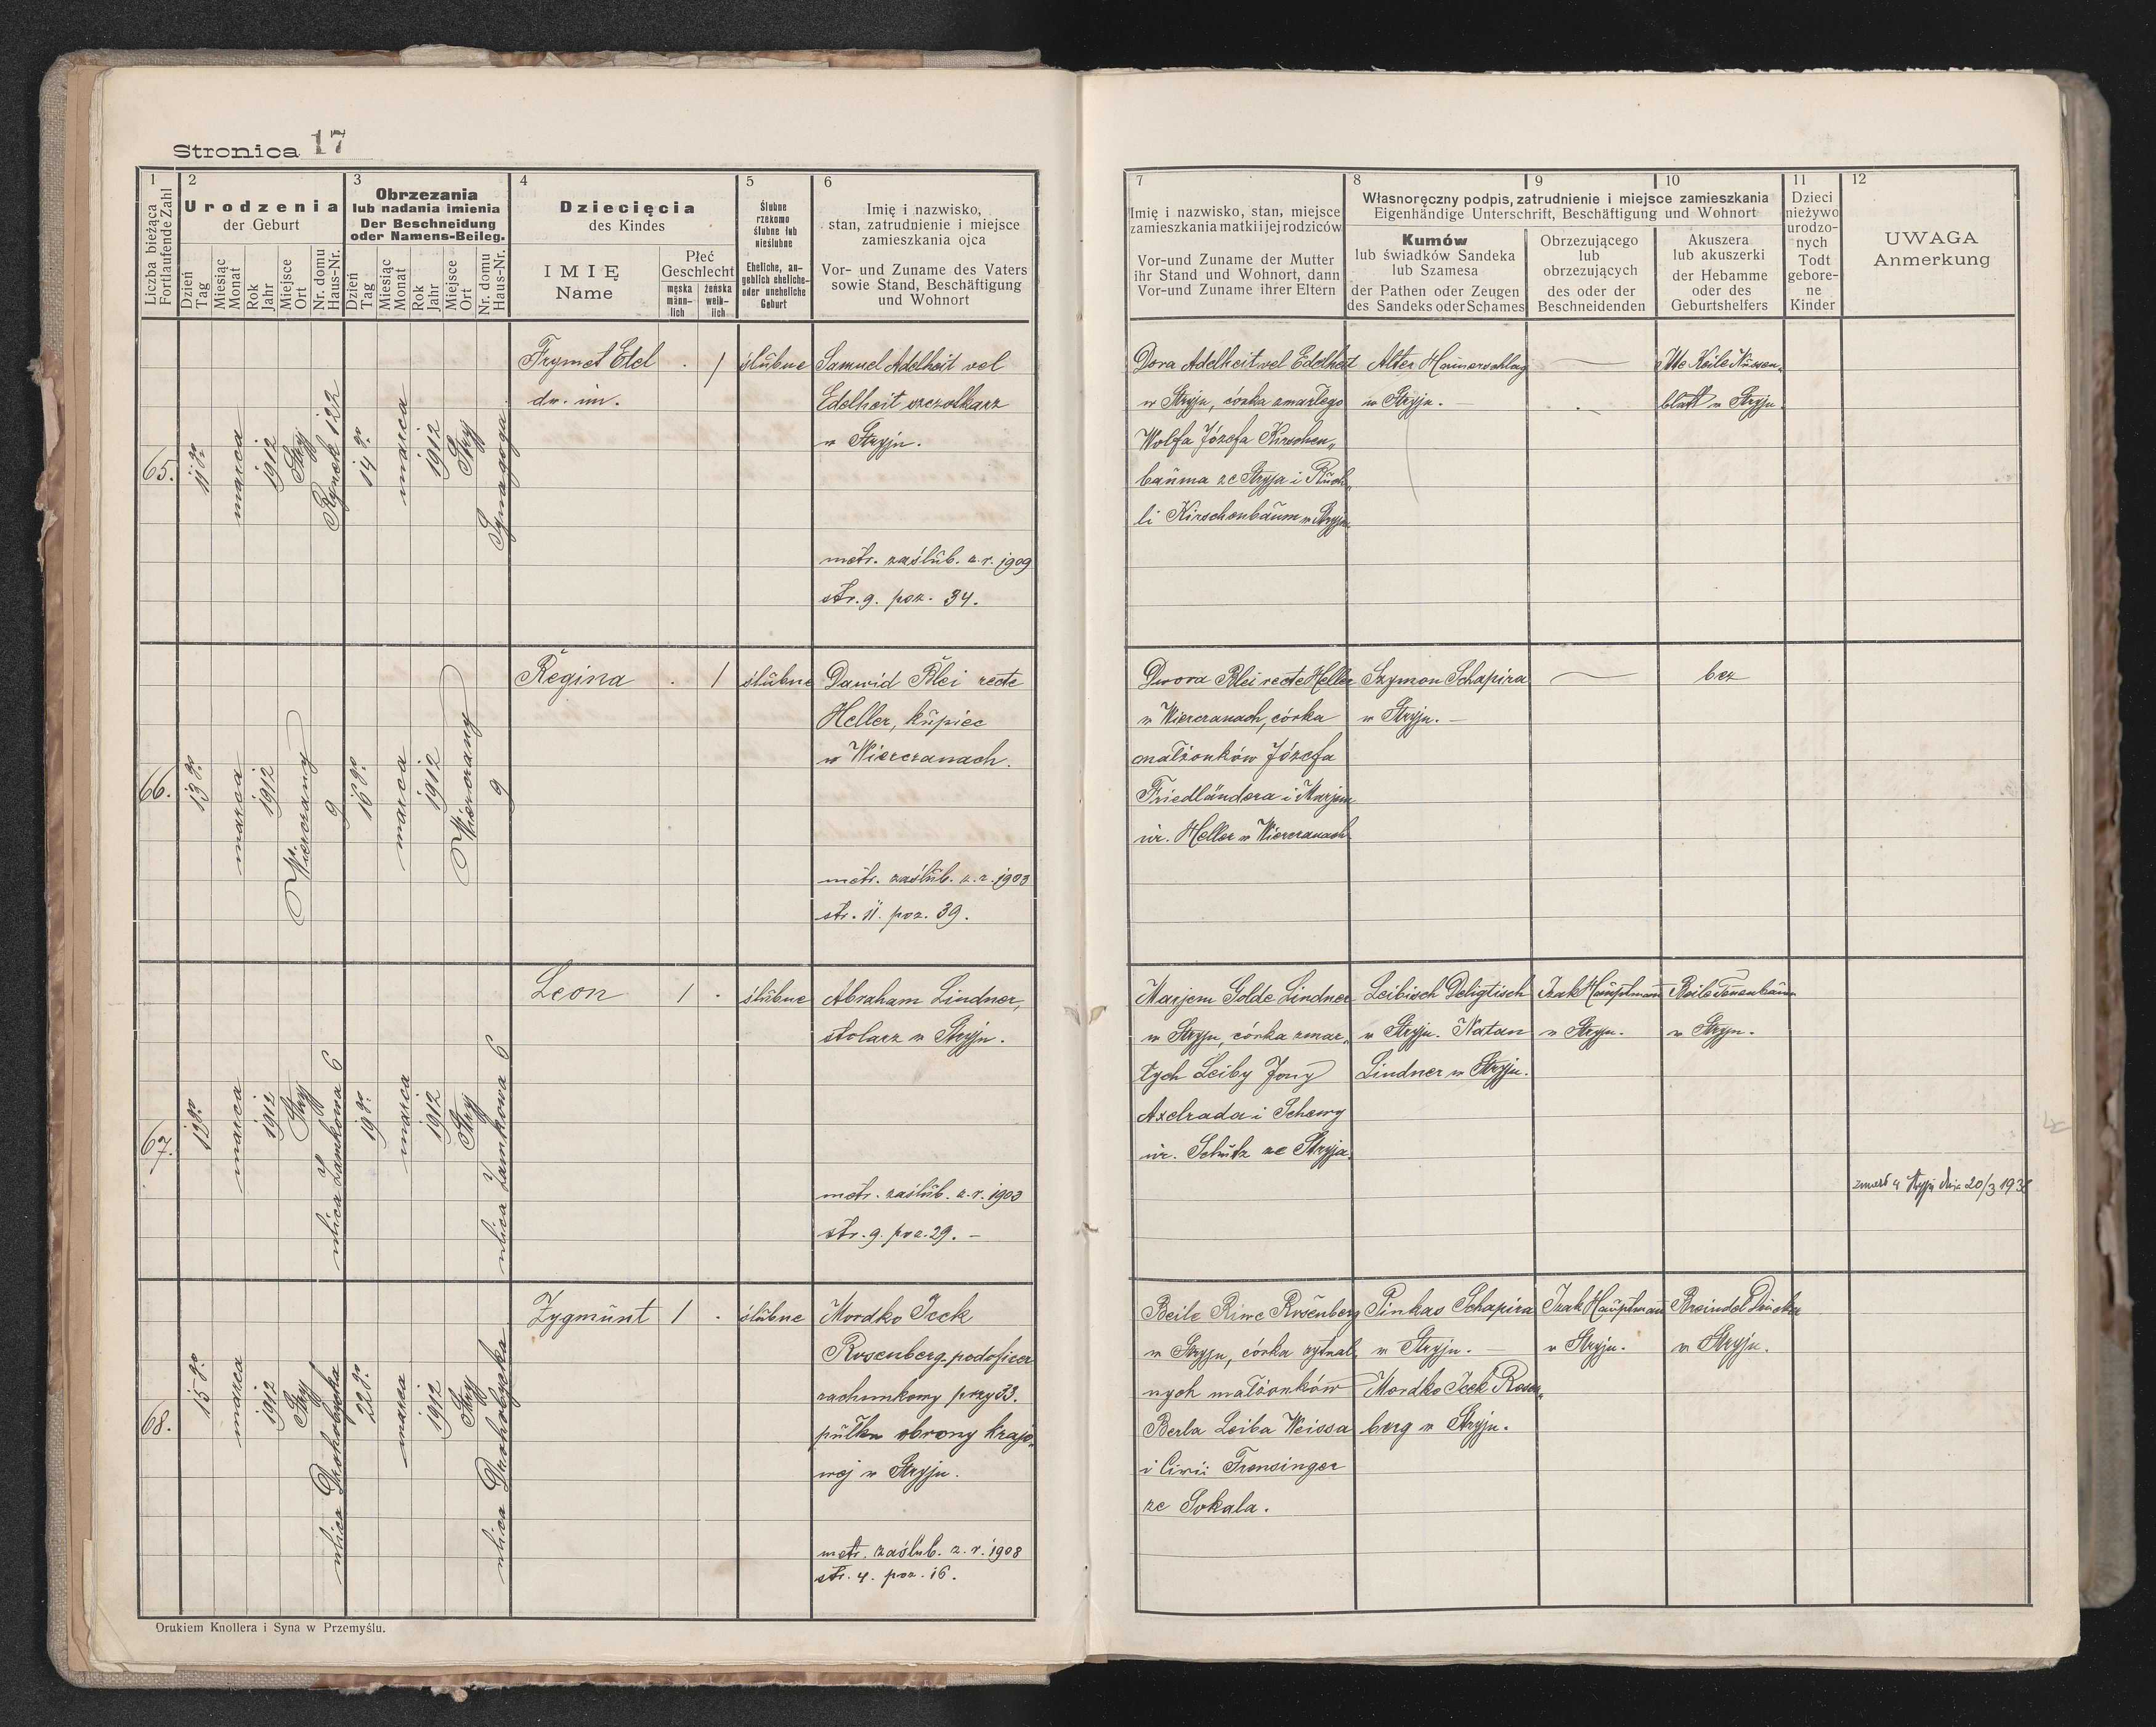 Stronica 17
1
2
3
4
5
6
Liczba bieżąca
Fortlaufende Zahl
Urodzenia
der Geburt
Obrzezania
lub nadania imienia
Der Beschneidung
oder Namens-Beileg.
Dziecięcia
des Kindes
Ślubne
rzekomo
ślubne lub
nieślubne
Eheliche, an-
geblich eheliche-
oder uneheliche
Geburt
Imię i nazwisko,
stan, zatrudnienie i miejsce
zamieszkania ojca
Vor- und Zuname des Vaters
sowie Stand, Beschäftigung
und Wohnort
Dzień
Tag
Miesiąc
Monat
Rok
Jahr
Miejsce
Ort
Nr. domu
Haus-Nr.
Dzień
Tag
Miesiąc
Monat
Rok
Jahr
Miejsce
Ort
Nr. domu
Haus-Nr.
IMIĘ
Name
Płeć
Geschlecht
męska
männ-
lich
żeńska
weib-
lich
7
8
9
10
11
12
Imię i nazwisko, stan, miejsce
zamieszkania matki i jej rodziców
Vor- und Zuname der Mutter
ihr Stand und Wohnort, dann
Vor- und Zuname ihrer Eltern
Własnoręczny podpis, zatrudnienie i miejsce zamieszkania
Eigenhändige Unterschrift, Beschäftigung und Wohnort
Kumów
lub świadków Sandeka
lub Szamesa
der Pathen oder Zeugen
des Sandeks oder Schames
Obrzezującego
lub
obrzezujących
des oder der
Beschneidenden
Akuszera
lub akuszerki
der Hebamme
oder des
Geburtshelfers
Dzieci
nieżywo
urodzo-
nych
Todt
gebore-
ne
Kinder
UWAGA
Anmerkung
65.
11go
marca
1912
Stryj
Rynek 122
14 go
marca
1912
Stryj
Synagoga
Frymet Etel
dw. im.
. /
ślubne
Samuel Adelheit vel
Edelheit szczotkarz
w Stryju.
metr. zaślub. z. r. 1909
str. 9. poz. 34.
Dora Adelheit vel Edelheit
w Stryju, córka zmarłego
Wolfa Józefa Kirschen„
bauma ze Stryja i Ruch„
li Kirschenbaum w Stryju
Alter Hamerschlag
w Stryju.
Itte Keile Nussen„
blatt w Stryju
66.
13 go
marca
1912
Wierczany
9
16 go
marca
1912
Wierczany
9
Regina
. /
ślubne
Dawid Blei recte
Heller, kupiec
w Wierczanach.
metr. zaślub. z. r. 1903
str. 11. poz. 39.
Dwora Blei recte Heller
w Wierczanach, córka
małżonków Józefa
Friedländera i Marjem
ur. Heller w Wierczanach
Szymon Schapira
w Stryju. —
bez
67.
13go
marca
1912
Stryj
ulica Zamkowa 6
19 go
marca
1912
Stryj
ulica Zamkowa 6
Leon
/ .
ślubne
Abraham Lindner,
stolarz w Stryju.
metr. zaślub. z. r. 1903
str. 9. poz. 29. —
Marjem Golde Lindner
w Stryju, córka zmar„
łych Leiby Jony
Axelrada i Schewy
ur. Schütz ze Stryja.
Leibisch Deligtisch
w Stryju. Natan
Lindner w Stryju.
Izak Hauptmann
w Stryju.
Beile Tenenbaum
w Stryju.
68.
15 go
marca
1912
Stryj
ulica Drohobycka
22 go
marca
1912
Stryj
ulica Drohobycka
Zygmunt
/ .
ślubne
Mordko Icek
Rosenberg podoficer
rachunkowy przy 33.
pułku obrony krajo„
wej w Stryju.
metr. zaślub. z. r. 1908
str. 4. poz. 16.
Beile Riwe Rosenberg
w Stryju, córka rytual„
nych małżonków
Berla Leiba Weissa
i Ciwii Frensinger
ze Sokala.
Pinkas Schapira
w Stryju. —
Mordko Icek Rosen„
berg w Stryju.
Izak Hauptmann
w Stryju.
Breindel Drucker
w Stryju.
Drukiem Knollera i Syna w Przemyślu.